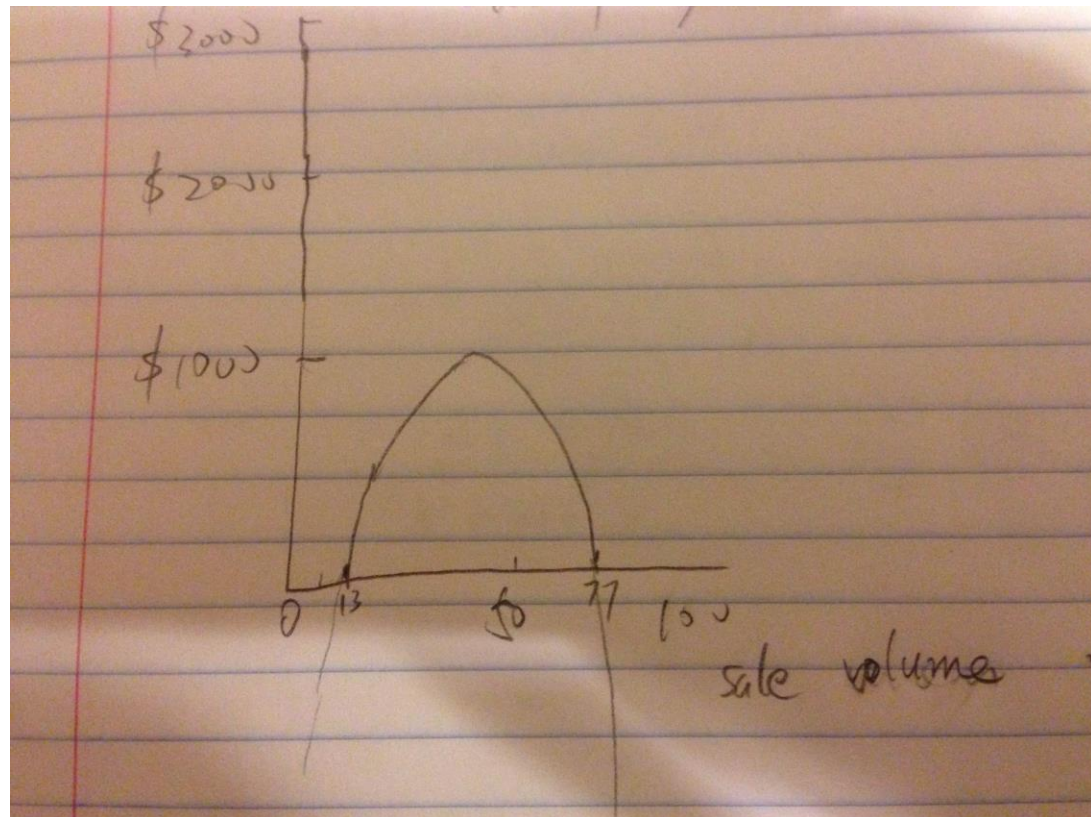 $3000
$2000
$1000
0 13 50 77 100
sale volume